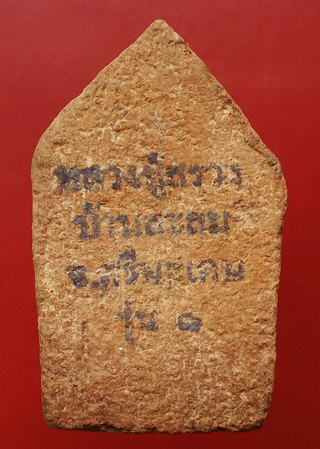 หลวงปู่สรวง
บ้านละลม
จ.ศรีษะเกษ
รุ่น ๑